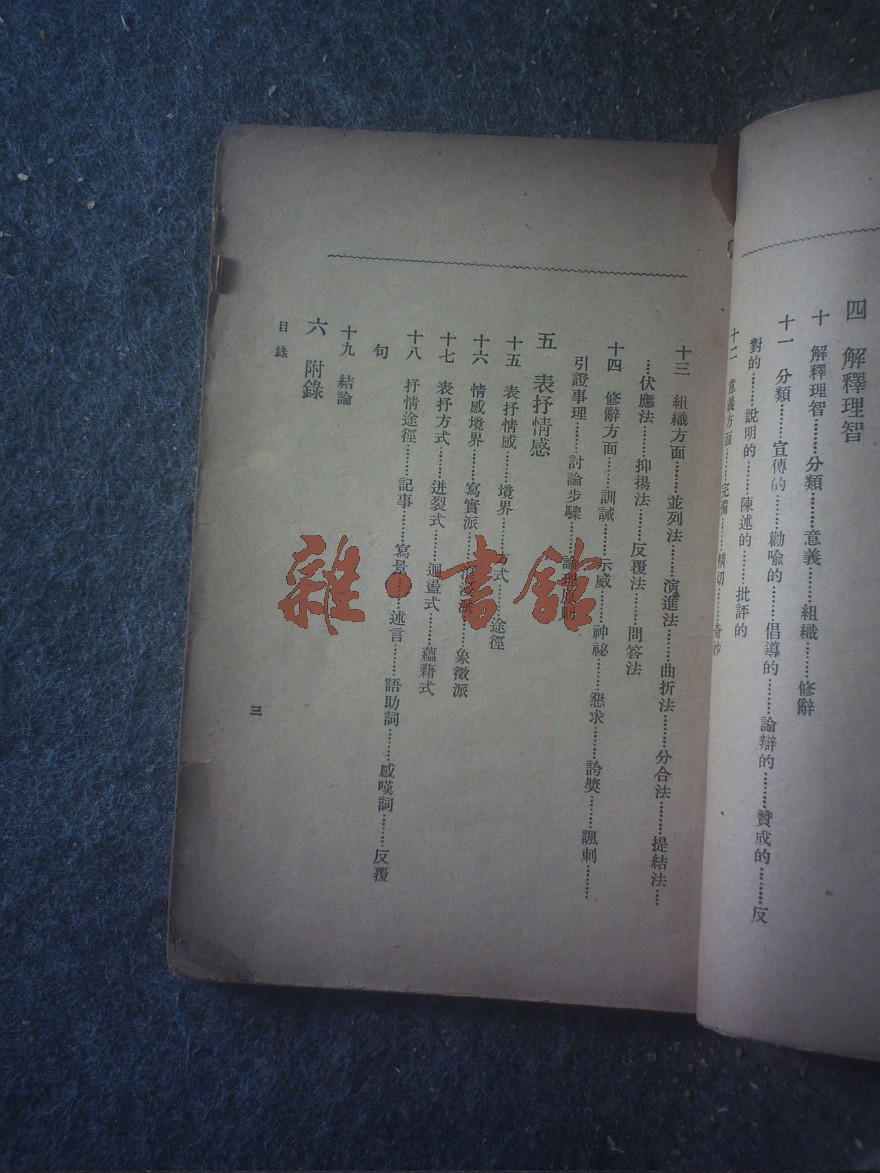 四 解釋理智
十 解釋理智……分類……意義……組織……修辭
十一 分類……宣傳的……勸喩的……倡導的……論辯的……贊成的……反
對的……說明的……陳述的……批評的
十二 意義方面……完備……精切……奇妙
十三 組織方面……並列法……演進法……曲折法……分合法……提結法……
……伏應法……抑揚法……反覆法……問答法
十四 修辭方面……訓誡……示威……神祕……懇求……誇獎……諷刺……
引證事理……討論步驟……論理原則
五 表抒情感
十五 表抒情感……境界……方式……途徑
十六 情感境界……寫實派……浪漫派……象徵派
十七 表抒方式……迸裂式……迴盪式……蘊藉式
十八 抒情途徑……記事……寫景……述言……語助詞……感嘆詞……反覆
句
十九 結論
六 附錄
目錄
三
雜·書館